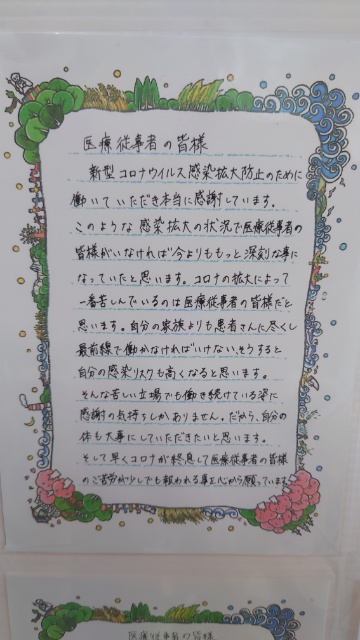 医療従事者の皆様
新型コロナウイルス感染拡大防止のために
働いていただき本当に感謝しています。
このような感染拡大の状況で医療従事者の
皆様がいなければ今よりももっと深刻な事に
なっていたと思います。コロナの拡大によって
一番苦しんでいるのは医療従事者の皆様だと
思います。自分の家族よりも患者さんに尽くし
最前線で働かなければいけない。そうすると
自分の感染リスクも高くなると思います。
そんな苦しい立場でも働き続けている姿に
感謝の気持ちしかありません。だから、自分の
体も大事にしていただきたいと思います。
そして早くコロナが終息して医療従事者の皆様
のご苦労が少しでも報われる事を心から願っています
医療従事者の皆様